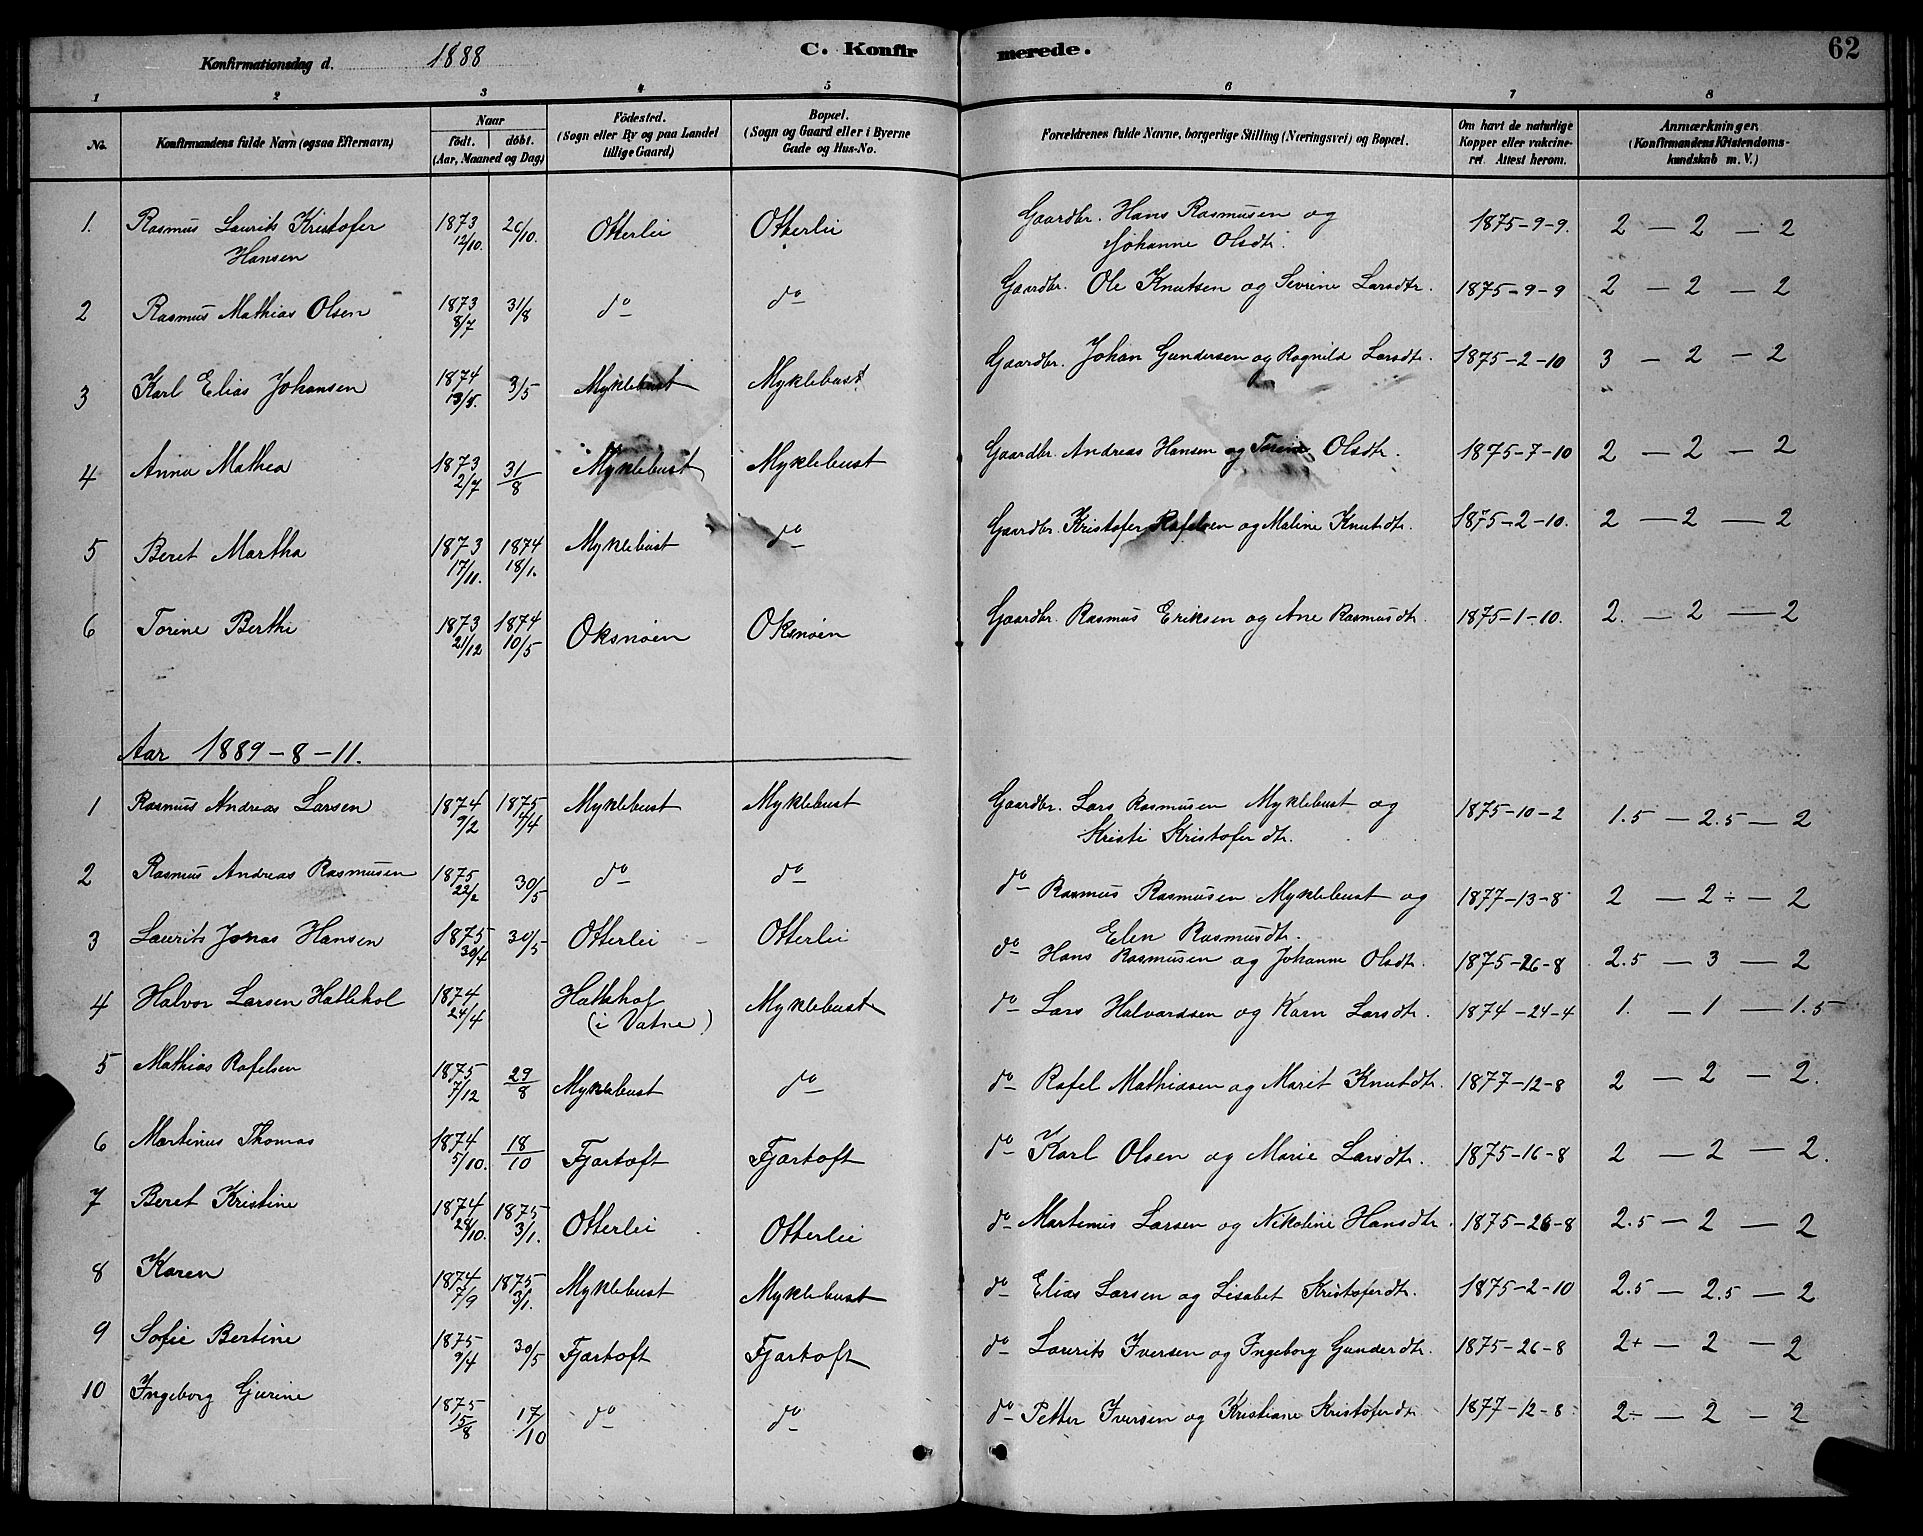 Konfirmationsdag d. 1888 C. Konfirmerede. 62
1 2 3 4 5 6 7 8
No. Konfirmandens fulde Navn (ogsaa Efternavn) Naar födt. döbt. (Aar, Maaned og Dag) Födested. (Sogn eller By og paa Landet tillige Gaard) Bopæl. (Sogn og Gaard eller i Byerne Gade og Hus-No. Forældrenes fulde Navne, borgerlige Stilling (Næringsvei) og Bopæl. Om havt de naturlige Kopper eller vakcineret. Attest herom. Anmærkninger. (Konfirmandens Kristendomskundskab m. V.)
1. Rasmus Laurits Kristofer Hansen 1873 12/10. 26/10. Otterlei Otterlei Gaardbr. Hans Rasmusen og Johanne Olsdtr. 1875-9-9. 2 — 2 — 2
2 Rasmus Mathias Olsen 1873 8/7 31/8 do do Gaardbr. Ole Knutsen og Sevrine Larsdtr. 1875-9-9 2 — 2 — 2
3 Karl Elias Johansen 1874 13/5. 3/5 Myklebust Myklebust Gaardbr. Johan Gundersen og Ragnild Larsdtr. 1875-2-10 3 — 2 — 2
4 Anna Mathea 1873 2/7 31/8 Myklebust Myklebust Gaardbr. Andreas Hansen og Torine Olsdtr. 1875-7-10 2 — 2 — 2
5 Beret Martha 1873 17/11. 1874 18/1. Myklebust do Gaardbr. Kristofer Rafelsen og Maline Knutdtr. 1875-2-10. 2 — 2 — 2
6 Torine Berthe 1873 21/12 1874 10/5 Oksnøen Oksnøen Gaardbr. Rasmus Eriksen og Ane Rasmusdtr. 1875-1-10. 2. — 2 — 2
Aar 1889-8-11.
1 Rasmus Andreas Larsen 1874 9/2 1875 4/4 Myklebust Myklebust Gaardbr. Lars Rasmusen Myklebust og Kristi Kristoferdtr. 1875-10-2 1.5 — 2.5 — 2
2 Rasmus Andreas Rasmusen 1875 22/2 30/5 do do do Rasmus Rasmusen Myklebust og Elen Rasmusdtr. 1877-13-8 2 — 2÷ — 2
3 Laurits Jonas Hansen 1875 30/4 30/5 Otterlei Otterlei do Hans Rasmusen og Johanne Olsdtr. 1875-26-8 2.5 — 3 — 2
4 Halvor Larsen Hatlehol 1874 24/4 (i Vatne) Myklebust do Lars Halvardsen og Karn Larsdtr. 1874-24-4 1. — 1 — 1.5
5 Mathias Rafelsen 1875 7/12 29/8 Myklebust do do Rafel Mathiasen og Marit Knutdtr. 1877-12-8 2 — 2 — 2.
6 Martinus Thomas 1874 5/10. 18/10 Fjærtoft Fjærtoft do Karl Olsen og Marie Larsdtr. 1875-16-8 2 — 2 — 2.
7 Beret Kristine 1874 28/10. 1875 3/1. Otterlei Otterlei do Martinus Larsen og Nikoline Hansdtr. 1875-26-8 2.5 — 2 — 2
8 Karen 1874 7/9 1875 3/1. Myklebust Myklebust do Elias Larsen og Lisabet Kristoferdtr. 1875-2-10 2.5 — 2.5 — 2
9 Sofie Bertine 1875 9/4 30/5 Fjærtoft Fjærtoft do Laurits Iversen og Ingeborg Gunderdtr. 1875-26-8 2+ — 2 — 2
10 Ingeborg Gjurine 1875 15/8 17/10 do do do Petter Iversen og Kristiane Kristoferdtr 1877-12-8 2÷ — 2 — 2